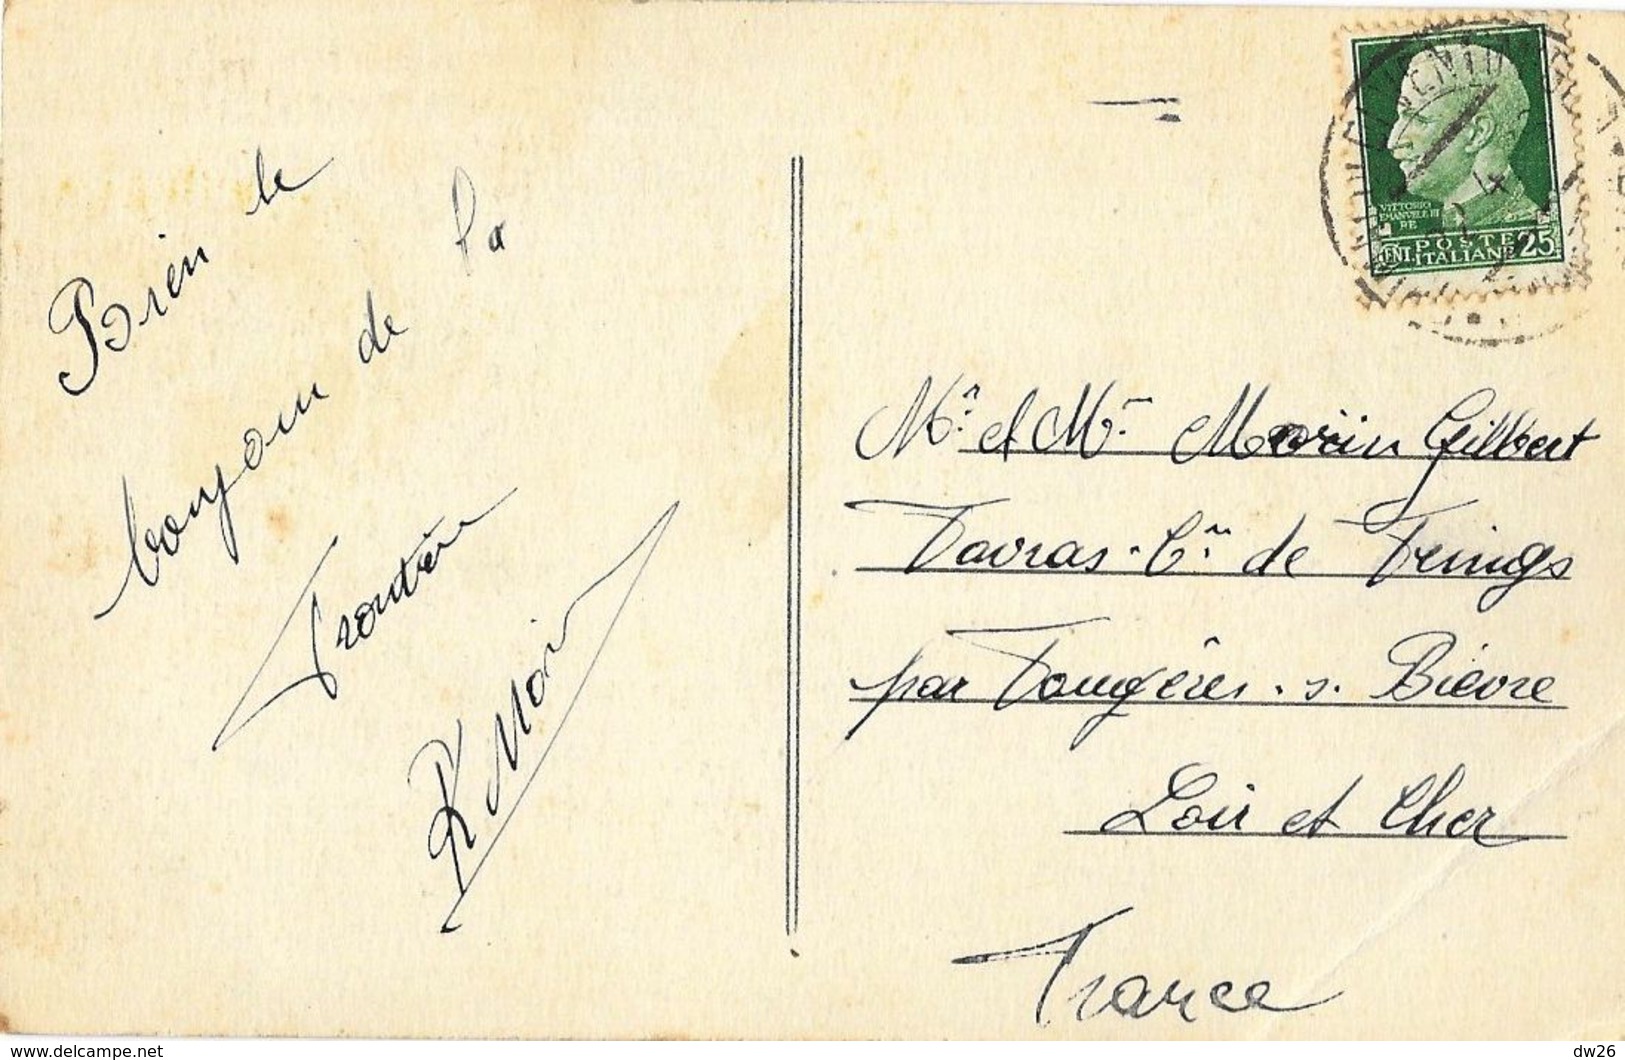 Bien le
bonjour de la
Frontière
R Morin
VITTORIO
EMANVELE III
RE
POSTE
CENT. ITALIANE 25
Mr. et Mme. Morin Gilbert
Favras. Cne de Feings
par Fougères. s. Bièvre
Loir et Cher
France
dw26